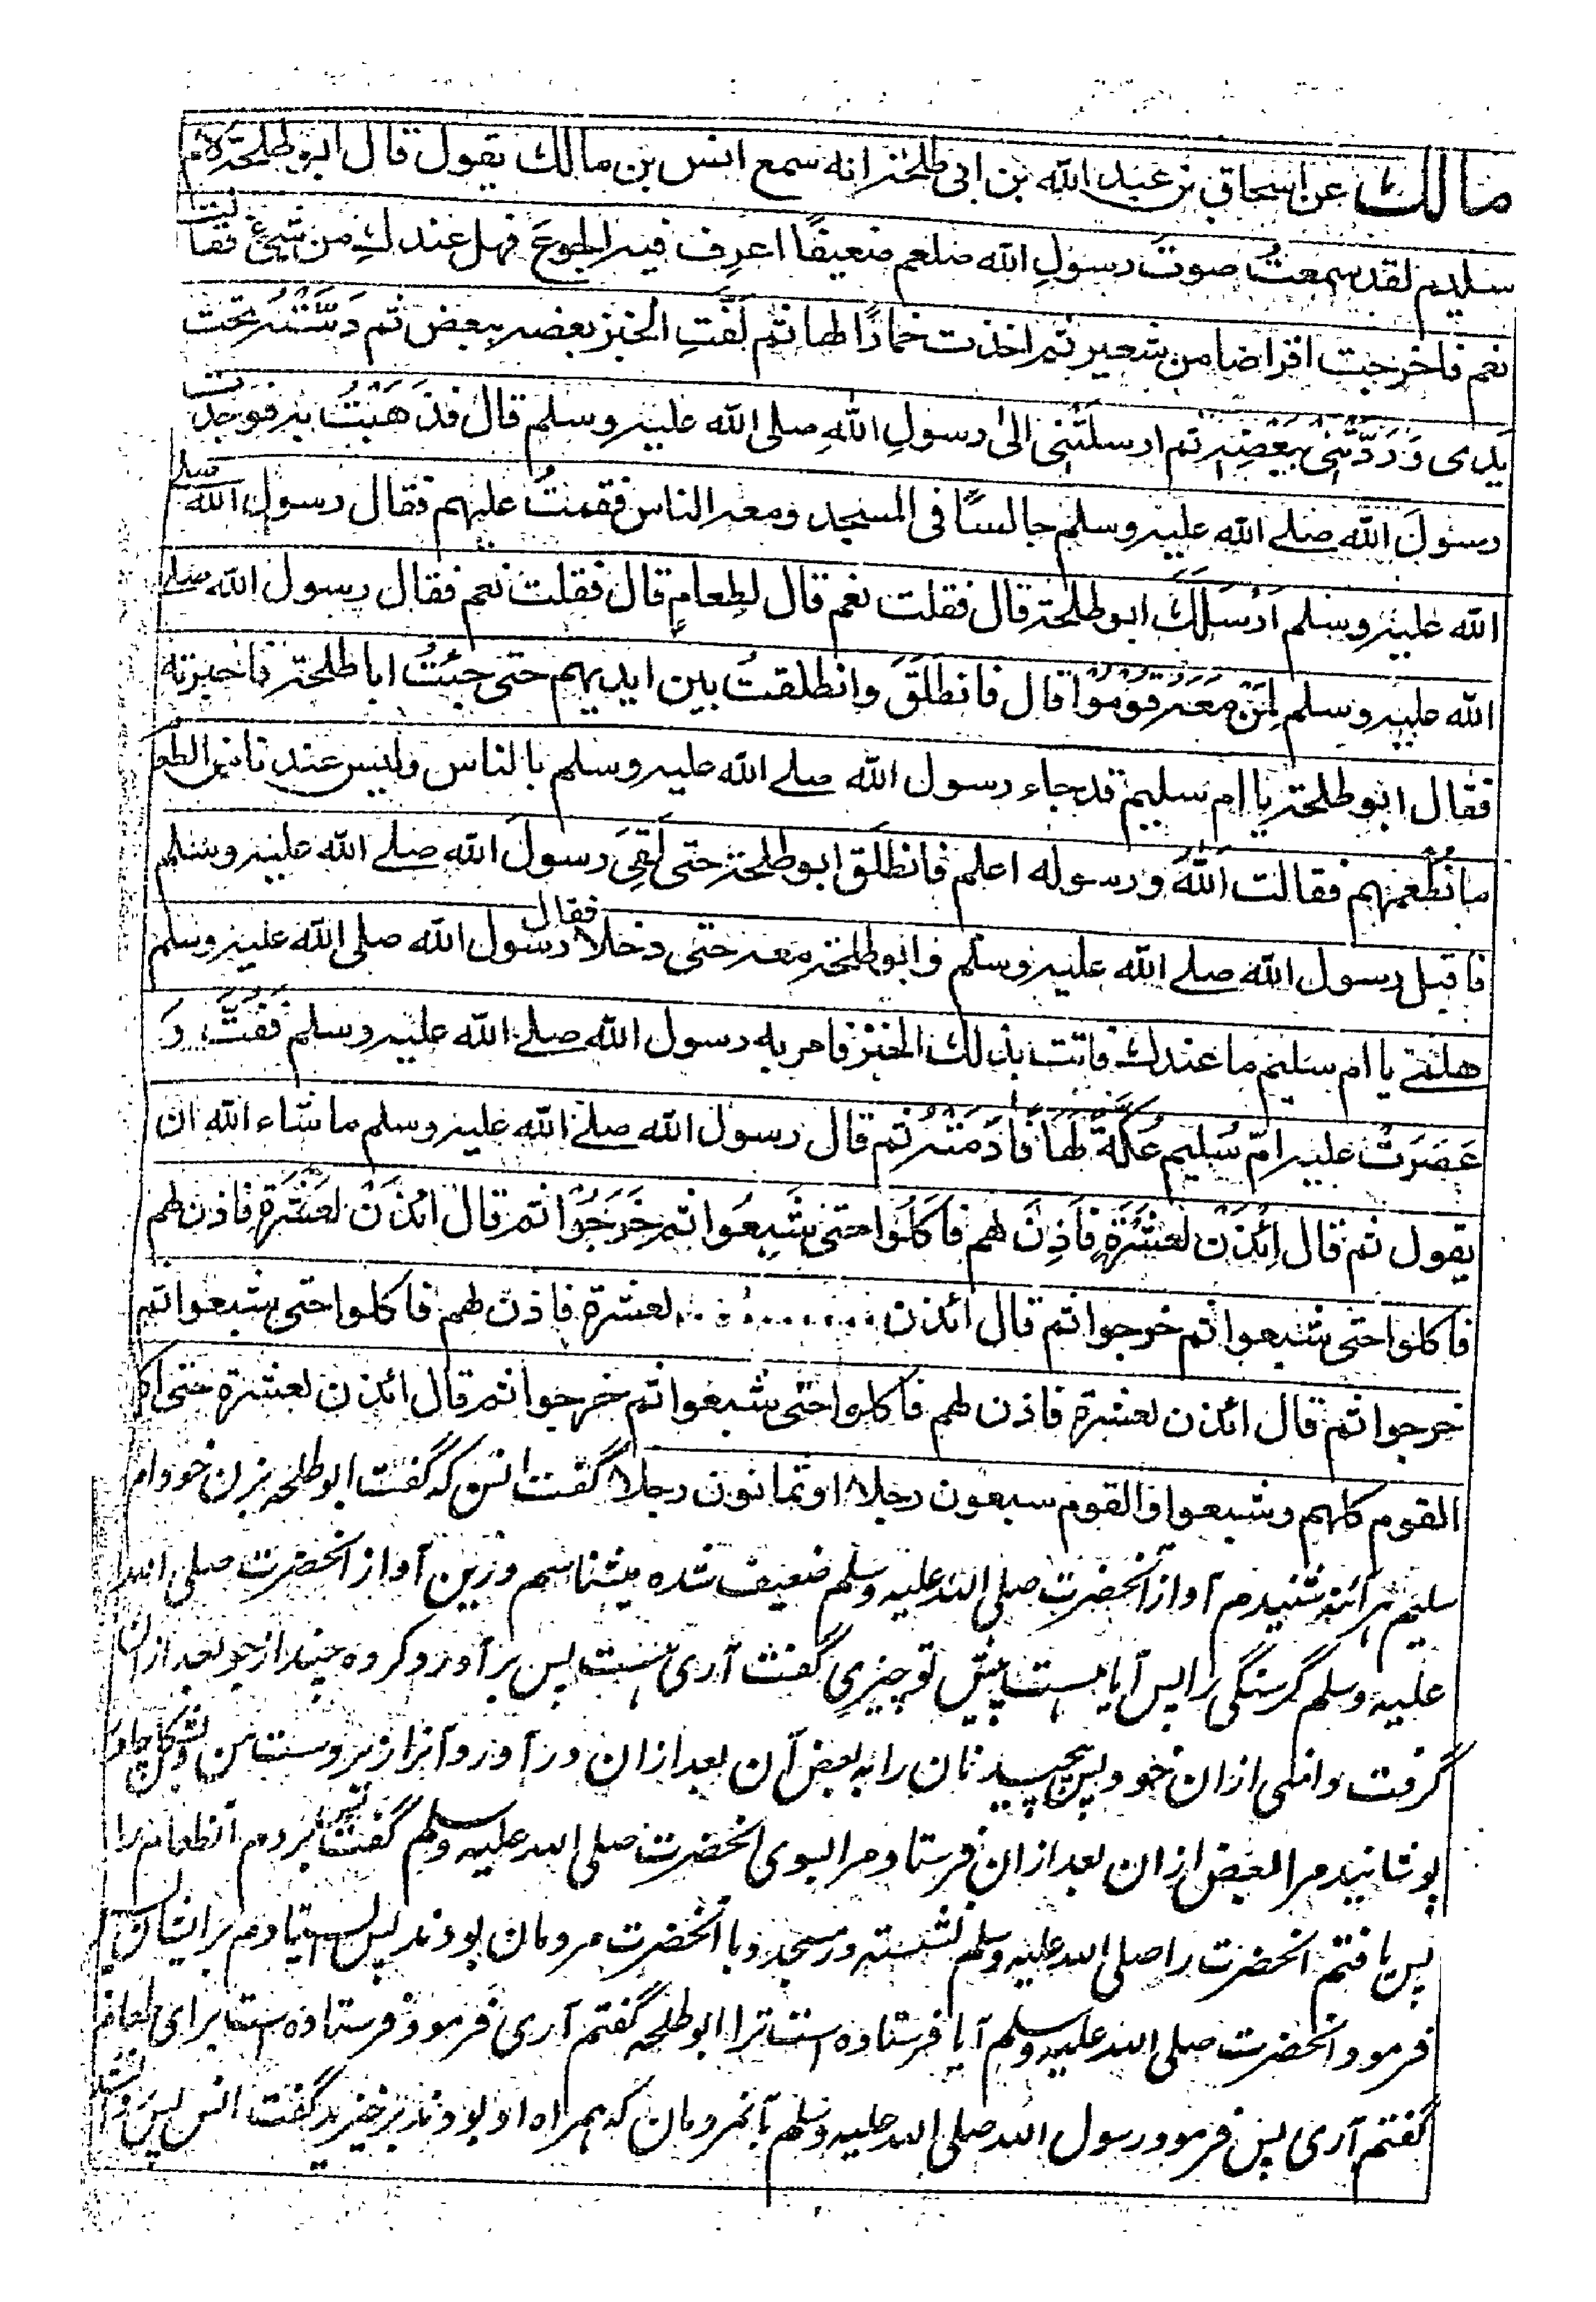 مالك عن اسحاق بن عبد الله بن ابى طلحة انه سمع انس بن مالك يقول قال ابو طلحة لام
سليم لقد سمعتُ صوتَ رسولِ الله صلعم ضعيفًا اعرِف فيه الجوعَ فهل عندكِ من شئ فقالت
نعم فاخرجت اقراصا من شعير ثم اخذت خمارًا لها ثم لَفَّتِ الخبز بعضه ببعض ثم دَسَّتْهُ تحت
يَدِى وَرَدَّتْنِى بِبَعْضِهٖ ثم ارسلَتْنِى الىٰ رسولِ اللهِ صلى الله عليه وسلم قال فذَهَبْتُ به فوجدت
رسولَ الله صلے الله عليه وسلم جالسًا فى المسجد ومعه الناس فقمتُ عليهم فقال رسول الله صلے
الله عليه وسلم اَرْسَلَكَ ابو طلحة قال فقلت نعم قال لِطعامٍ قال فقلت نعم فقال رسول الله صلے
الله عليه وسلم لِمَنْ مَعَهٗ قُوْمُوْا قال فانطَلَقَ وانطلقتُ بين ايديهم حتى جِئتُ ابا طلحة فاخبرته
فقال ابو طلحة يا ام سليم قد جاء رسول الله صلے الله عليه وسلم بالناس وليس عندنا من الطعام
ما نُطْعِمُهم فقالت اَللهُ ورسوله اعلم فانطلَق ابو طلحة حتى لَقِىَ رسولَ الله صلے الله عليه وسلم
فاقبل رسول الله صلے الله عليه وسلم وابو طلحة معه حتى دخلا فقال رسول الله صلى الله عليه وسلم
هلمّے يا ام سليم ما عندك فاتت بذلك الخبز فامر به رسول الله صلے الله عليه وسلم فَفُتَّ وَ
عَصَرَتْ عليه امّ سُليم عُكَّةً لها فَاَدَمَتْهُ ثم قال رسول الله صلے الله عليه وسلم ما شاء الله ان
يقول ثم قال اِئْذَنْ لعَشَرَةٍ فَاَذِنَ لهم فاَكَلُوا حتى شَبِعُوا ثم خَرَجُوْا ثم قال ائذَنْ لعَشَرَةٍ فاذن لهم
فاكلوا حتى شبعوا ثم خرجوا ثم قال ائذن لعشرة فاذن لهم فاكلوا حتى شبعوا ثم
خرجوا ثم قال ائذن لعشرة فاذن لهم فاكلوا حتى شبعوا ثم خرجوا ثم قال ائذن لعشرة حتى اكل
القوم كلهم وشبعوا والقوم سبعون رجلا او ثمانون رجلا گفت انس كه گفت ابو طلحه بزن خود ام
سليم هر آئنه شنيدم آواز آنحضرت صلى الله عليه وسلم ضعيف شده ميشناسم درين آواز آنحضرت صلى الله
عليه وسلم گرسنگى را پس آيا هست پيش تو چيزى گفت آرى هست پس بر آورد گرده چند از جو بعد ازان
گرفت دامنى ازان خود پس پيچيد نان را به بعض آن بعد ازان در آورد آنرا زير دست من و بشكل چادر
پوشانيد مرا ببعض ازان بعد ازان فرستاد مرا بسوى آنحضرت صلى الله عليه وسلم گفت پس بردم آنطعام را
پس يافتم آنحضرت را صلى الله عليه وسلم نشسته در مسجد و با آنحضرت مردمان بودند پس ايستادم بر ايشان پس
فرمود آنحضرت صلى الله عليه وسلم آيا فرستاده است ترا ابو طلحه گفتم آرى فرمود فرستاده است براى طعام
گفتم آرى پس فرمود رسول الله صلى الله عليه وسلم بآنمردمان كه همراه او بودند برخيزيد گفت انس پس